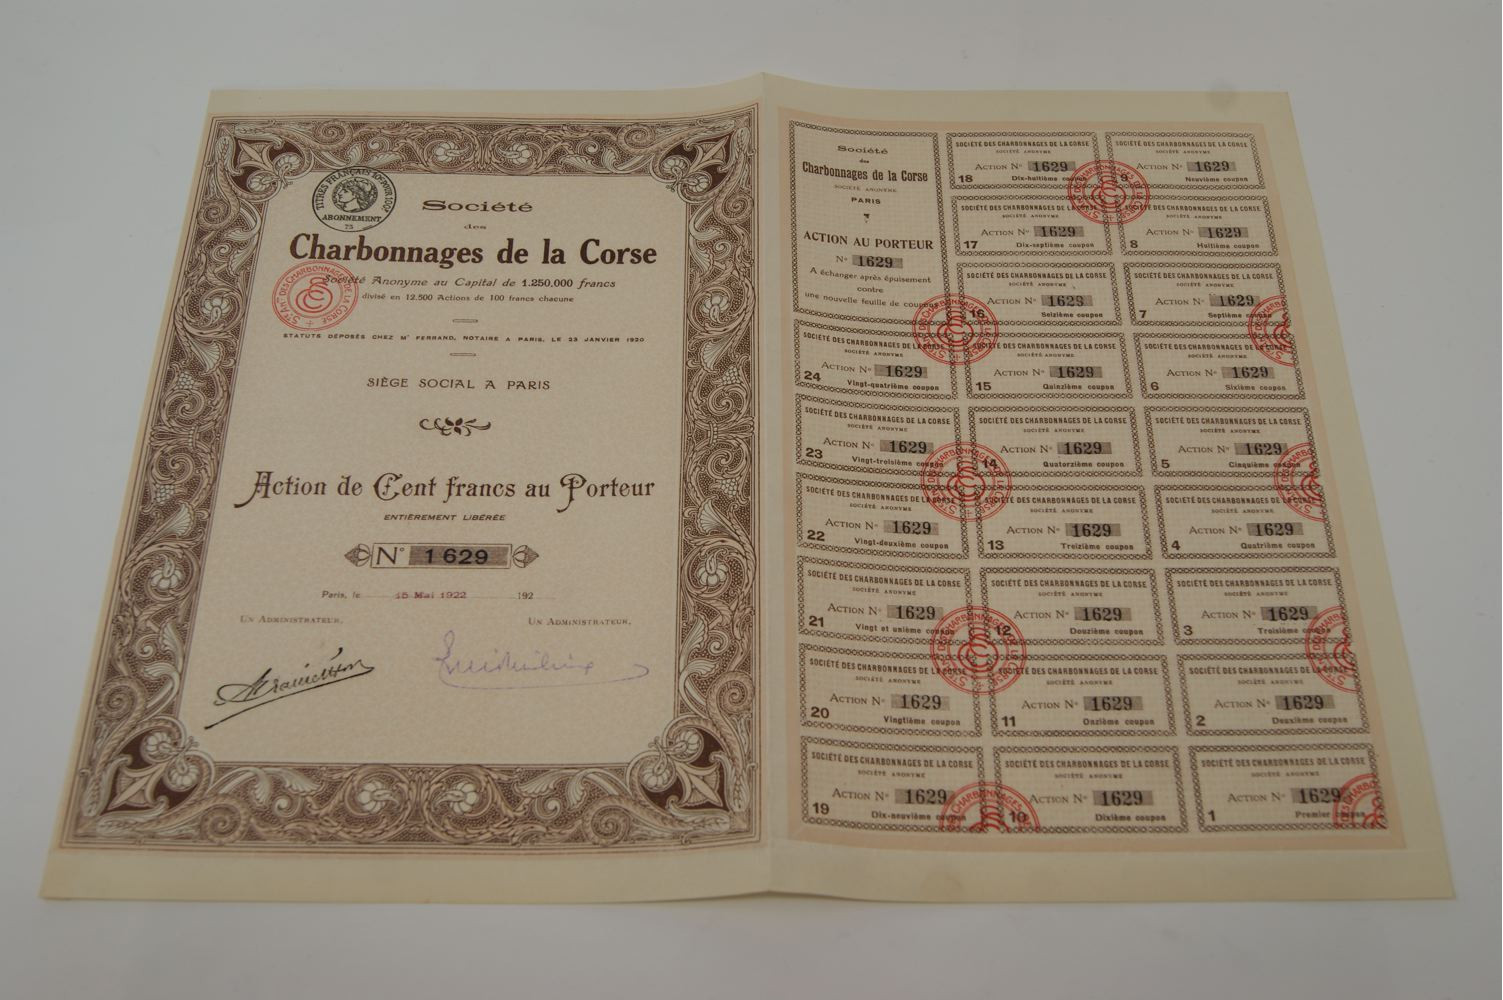 TITRES FRANÇAIS
ABONNEMENT
73
Société
des
Charbonnages de la Corse
Société Anonyme au Capital de 1.250.000 francs
divisé en 12.500 Actions de 100 francs chacune
STATUTS DÉPOSÉS CHEZ Mᵉ FERRAND, NOTAIRE A PARIS, LE 23 JANVIER 1920
SIÈGE SOCIAL A PARIS
Action de Cent francs au Porteur
ENTIÈREMENT LIBÉRÉE
N° 1629
Paris, le 15 Mai 1922 192
UN ADMINISTRATEUR,
UN ADMINISTRATEUR,
Société
des
Charbonnages de la Corse
SOCIÉTÉ ANONYME
PARIS
ACTION AU PORTEUR
N° 1629
A échanger après épuisement
contre
une nouvelle feuille de coupons
SOCIÉTÉ DES CHARBONNAGES DE LA CORSE
SOCIÉTÉ ANONYME
ACTION N° 1629
24 Vingt-quatrième coupon
SOCIÉTÉ DES CHARBONNAGES DE LA CORSE
SOCIÉTÉ ANONYME
ACTION N° 1629
23 Vingt-troisième coupon
SOCIÉTÉ DES CHARBONNAGES DE LA CORSE
SOCIÉTÉ ANONYME
ACTION N° 1629
22 Vingt-deuxième coupon
SOCIÉTÉ DES CHARBONNAGES DE LA CORSE
SOCIÉTÉ ANONYME
ACTION N° 1629
21 Vingt et unième coupon
SOCIÉTÉ DES CHARBONNAGES DE LA CORSE
SOCIÉTÉ ANONYME
ACTION N° 1629
20 Vingtième coupon
SOCIÉTÉ DES CHARBONNAGES DE LA CORSE
SOCIÉTÉ ANONYME
ACTION N° 1629
19 Dix-neuvième coupon
SOCIÉTÉ DES CHARBONNAGES DE LA CORSE
SOCIÉTÉ ANONYME
ACTION N° 1629
18 Dix-huitième coupon
SOCIÉTÉ DES CHARBONNAGES DE LA CORSE
SOCIÉTÉ ANONYME
ACTION N° 1629
17 Dix-septième coupon
SOCIÉTÉ DES CHARBONNAGES DE LA CORSE
SOCIÉTÉ ANONYME
ACTION N° 1629
16 Seizième coupon
SOCIÉTÉ DES CHARBONNAGES DE LA CORSE
SOCIÉTÉ ANONYME
ACTION N° 1629
15 Quinzième coupon
SOCIÉTÉ DES CHARBONNAGES DE LA CORSE
SOCIÉTÉ ANONYME
ACTION N° 1629
14 Quatorzième coupon
SOCIÉTÉ DES CHARBONNAGES DE LA CORSE
SOCIÉTÉ ANONYME
ACTION N° 1629
13 Treizième coupon
SOCIÉTÉ DES CHARBONNAGES DE LA CORSE
SOCIÉTÉ ANONYME
ACTION N° 1629
12 Douzième coupon
SOCIÉTÉ DES CHARBONNAGES DE LA CORSE
SOCIÉTÉ ANONYME
ACTION N° 1629
11 Onzième coupon
SOCIÉTÉ DES CHARBONNAGES DE LA CORSE
SOCIÉTÉ ANONYME
ACTION N° 1629
10 Dixième coupon
SOCIÉTÉ DES CHARBONNAGES DE LA CORSE
SOCIÉTÉ ANONYME
ACTION N° 1629
9 Neuvième coupon
SOCIÉTÉ DES CHARBONNAGES DE LA CORSE
SOCIÉTÉ ANONYME
ACTION N° 1629
8 Huitième coupon
SOCIÉTÉ DES CHARBONNAGES DE LA CORSE
SOCIÉTÉ ANONYME
ACTION N° 1629
7 Septième coupon
SOCIÉTÉ DES CHARBONNAGES DE LA CORSE
SOCIÉTÉ ANONYME
ACTION N° 1629
6 Sixième coupon
SOCIÉTÉ DES CHARBONNAGES DE LA CORSE
SOCIÉTÉ ANONYME
ACTION N° 1629
5 Cinquième coupon
SOCIÉTÉ DES CHARBONNAGES DE LA CORSE
SOCIÉTÉ ANONYME
ACTION N° 1629
4 Quatrième coupon
SOCIÉTÉ DES CHARBONNAGES DE LA CORSE
SOCIÉTÉ ANONYME
ACTION N° 1629
3 Troisième coupon
SOCIÉTÉ DES CHARBONNAGES DE LA CORSE
SOCIÉTÉ ANONYME
ACTION N° 1629
2 Deuxième coupon
SOCIÉTÉ DES CHARBONNAGES DE LA CORSE
SOCIÉTÉ ANONYME
ACTION N° 1629
1 Premier coupon